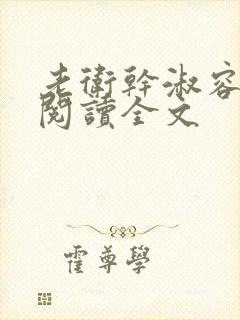 老衛幹淑容
閱讀全文
霍尊學